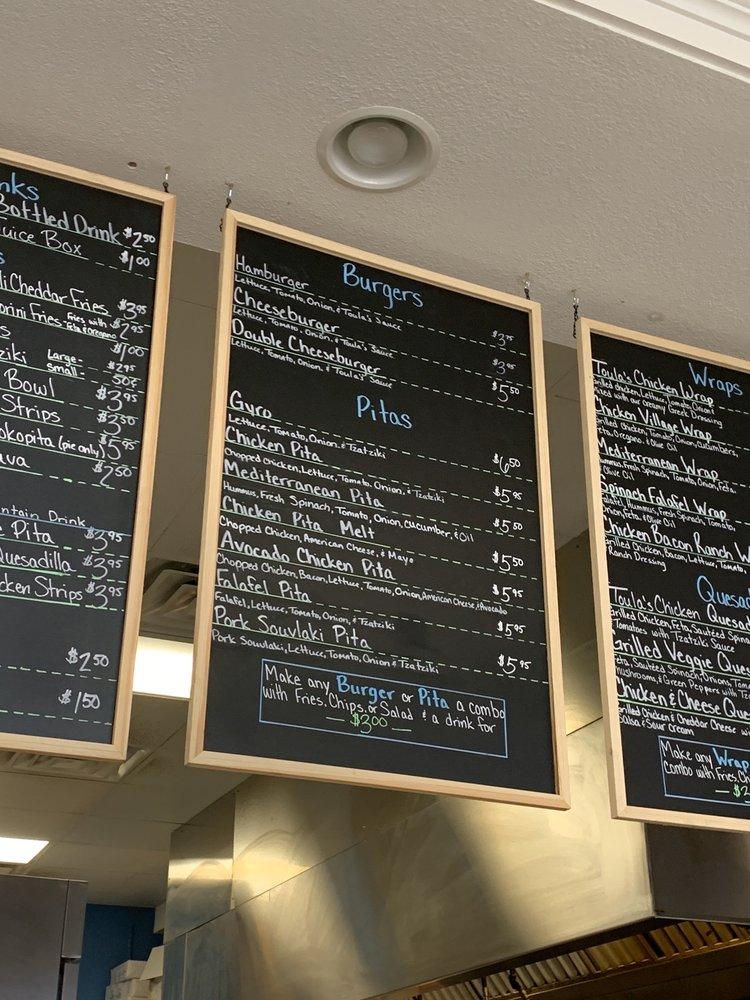 nks
Bottled Drink $2.50
Juice Box $1.00
Cheddar Fries $3.95
Fries Fries with Feta & Oregano $2.95
$1.00
ziki Large- $2.95
small- 50¢
Bowl $3.95
Strips $3.50
okopita (pie only) $5.95
ava $2.50
ntain Drink
Pita $3.95
Quesadilla $3.95
cken Strips $3.95
$2.50
$1.50
Burgers
Hamburger $3.75
Lettuce, Tomato, Onion, & Toula's Sauce
Cheeseburger $3.95
Lettuce, Tomato, Onion, & Toula's Sauce
Double Cheeseburger $5.50
Lettuce, Tomato, Onion, & Toula's Sauce
Pitas
Gyro $6.50
Lettuce, Tomato, Onion, & Tzatziki
Chicken Pita $5.95
Chopped Chicken, Lettuce, Tomato, Onion, & Tzatziki
Mediterranean Pita $5.50
Hummus, Fresh Spinach, Tomato, Onion, Cucumber, & Oil
Chicken Pita Melt $5.50
Chopped Chicken, American Cheese, & Mayo
Avocado Chicken Pita $5.95
Chopped Chicken, Bacon, Lettuce, Tomato, Onion, American Cheese, & Avocado
Falafel Pita $5.95
Falafel, Lettuce, Tomato, Onion, & Tzatziki
Pork Souvlaki Pita $5.95
Pork Souvlaki, Lettuce, Tomato, Onion & Tzatziki
Make any Burger or Pita a combo
with Fries, Chips, or Salad & a drink for
— $3.00 —
Wraps
Toula's Chicken Wrap
Grilled chicken, Lettuce, Tomato, Onion &
Mixed with our creamy Greek Dressing
Chicken Village Wrap
Grilled Chicken, Tomato, Onion, cucumbers,
Feta, Oregano & Olive Oil
Mediterranean Wrap
Hummus, Fresh Spinach, Tomato, Onion, Feta,
Olive Oil
Spinach Falafel Wrap
Falafel, Hummus, Fresh Spinach, Tomato,
Onion, Feta, & Olive Oil
Chicken Bacon Ranch W
Grilled Chicken, Bacon, Lettuce, Tomato,
Ranch Dressing
Quesa
Toula's Chicken Quesad
Grilled Chicken, Feta, Sautéed Spina
Tomatoes with Tzatziki Sauce
Grilled Veggie Que
Feta, Sautéed Spinach, Onions, Tom
Mushrooms, & Green Peppers with Tz
Chicken & Cheese Que
Grilled Chicken & Cheddar Cheese wi
Salsa & Sour cream
Make any Wrap
combo with Fries, Ch
— $2